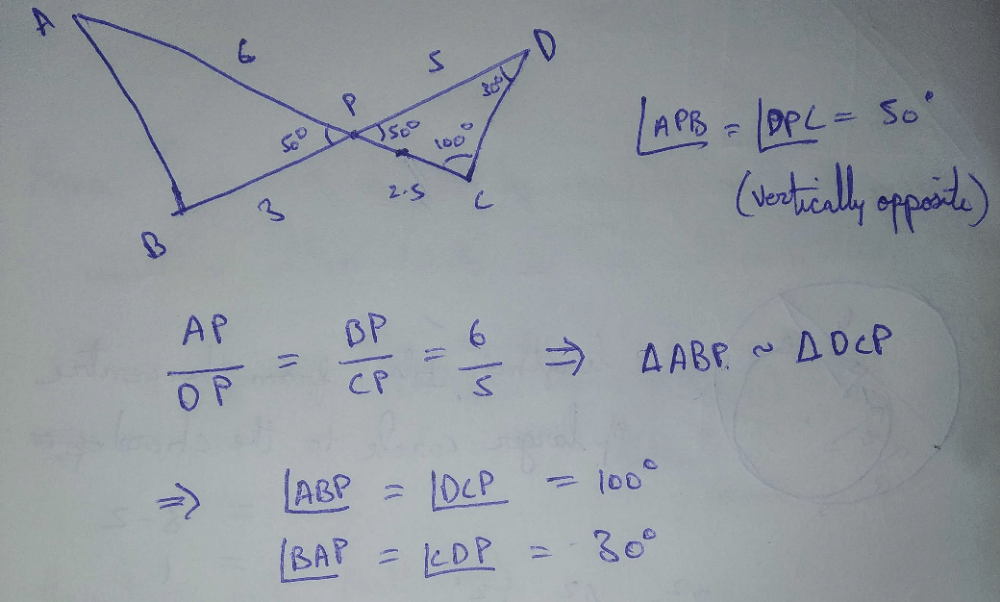 A
6
5
D
P
30°
50°
50°
100°
3
2.5
C
B
∠APB = ∠DPC = 50°
(vertically opposite)
AP/DP = BP/CP = 6/5 ⇒ ΔABP ~ ΔDCP
⇒ ∠ABP = ∠DCP = 100°
∠BAP = ∠CDP = 30°